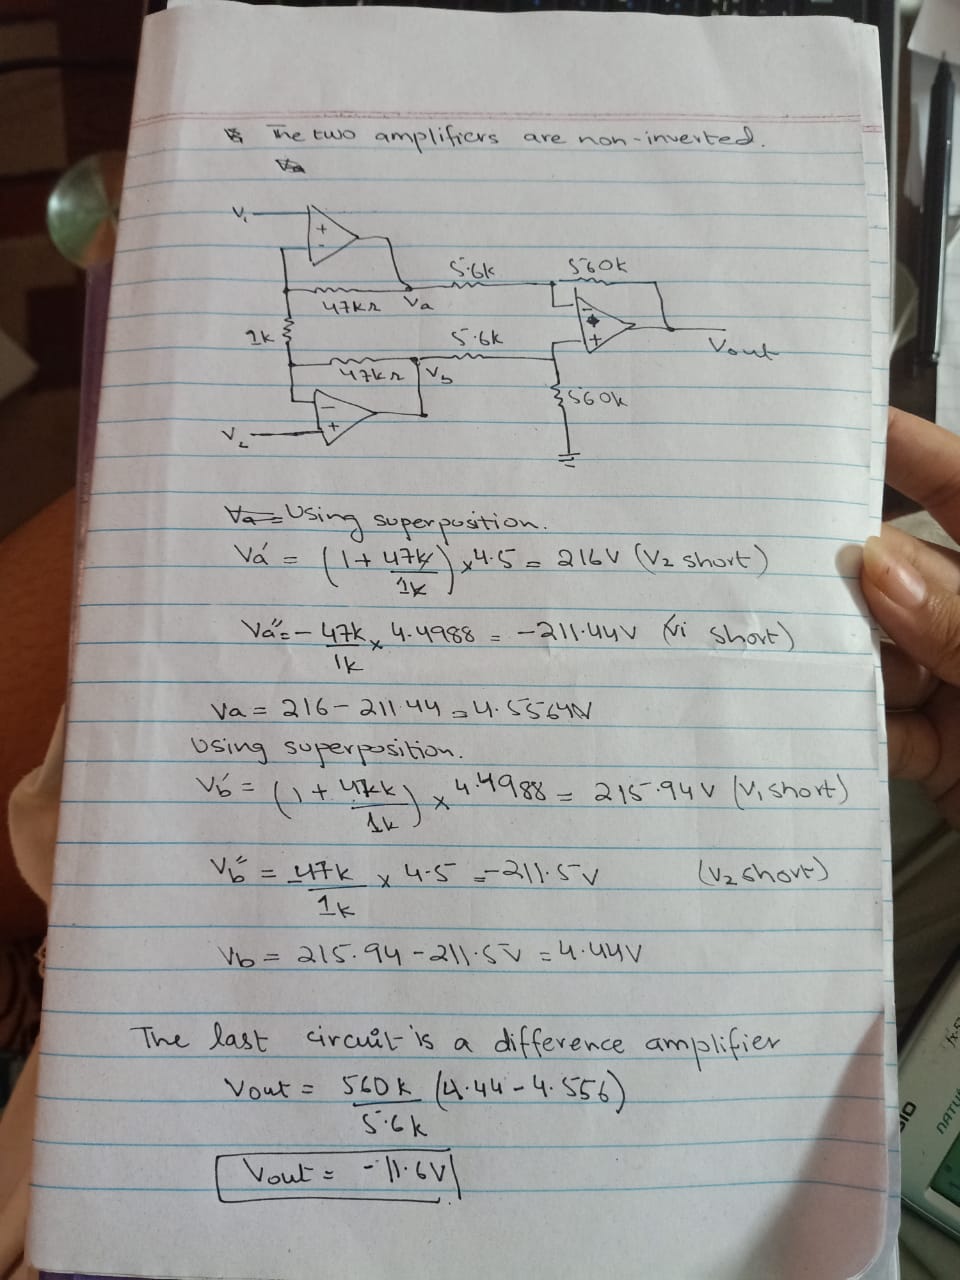 The two amplifiers are non-inverted.
Va
V1
+
-
5.6k
560k
47kΩ
Va
1k
5.6k
-
+
Vout
47kΩ
Vb
-
+
560k
V2
Va= Using superposition.
Va' = (1+ 47k/1k) x4.5 = 216V (V2 short)
Va''= - 47k/1k x 4.4988 = -211.44V (Vi short)
Va = 216 - 211.44 = 4.5564V
Using superposition.
Vb' = (1 + 47k/1k) x 4.4988 = 215.94V (V1 short)
Vb'' = -47k/1k x 4.5 = -211.5V (V2 short)
Vb = 215.94 - 211.5V = 4.44V
The last circuit is a difference amplifier
Vout = 560k/5.6k (4.44 - 4.556)
Vout = -11.6V
NATU